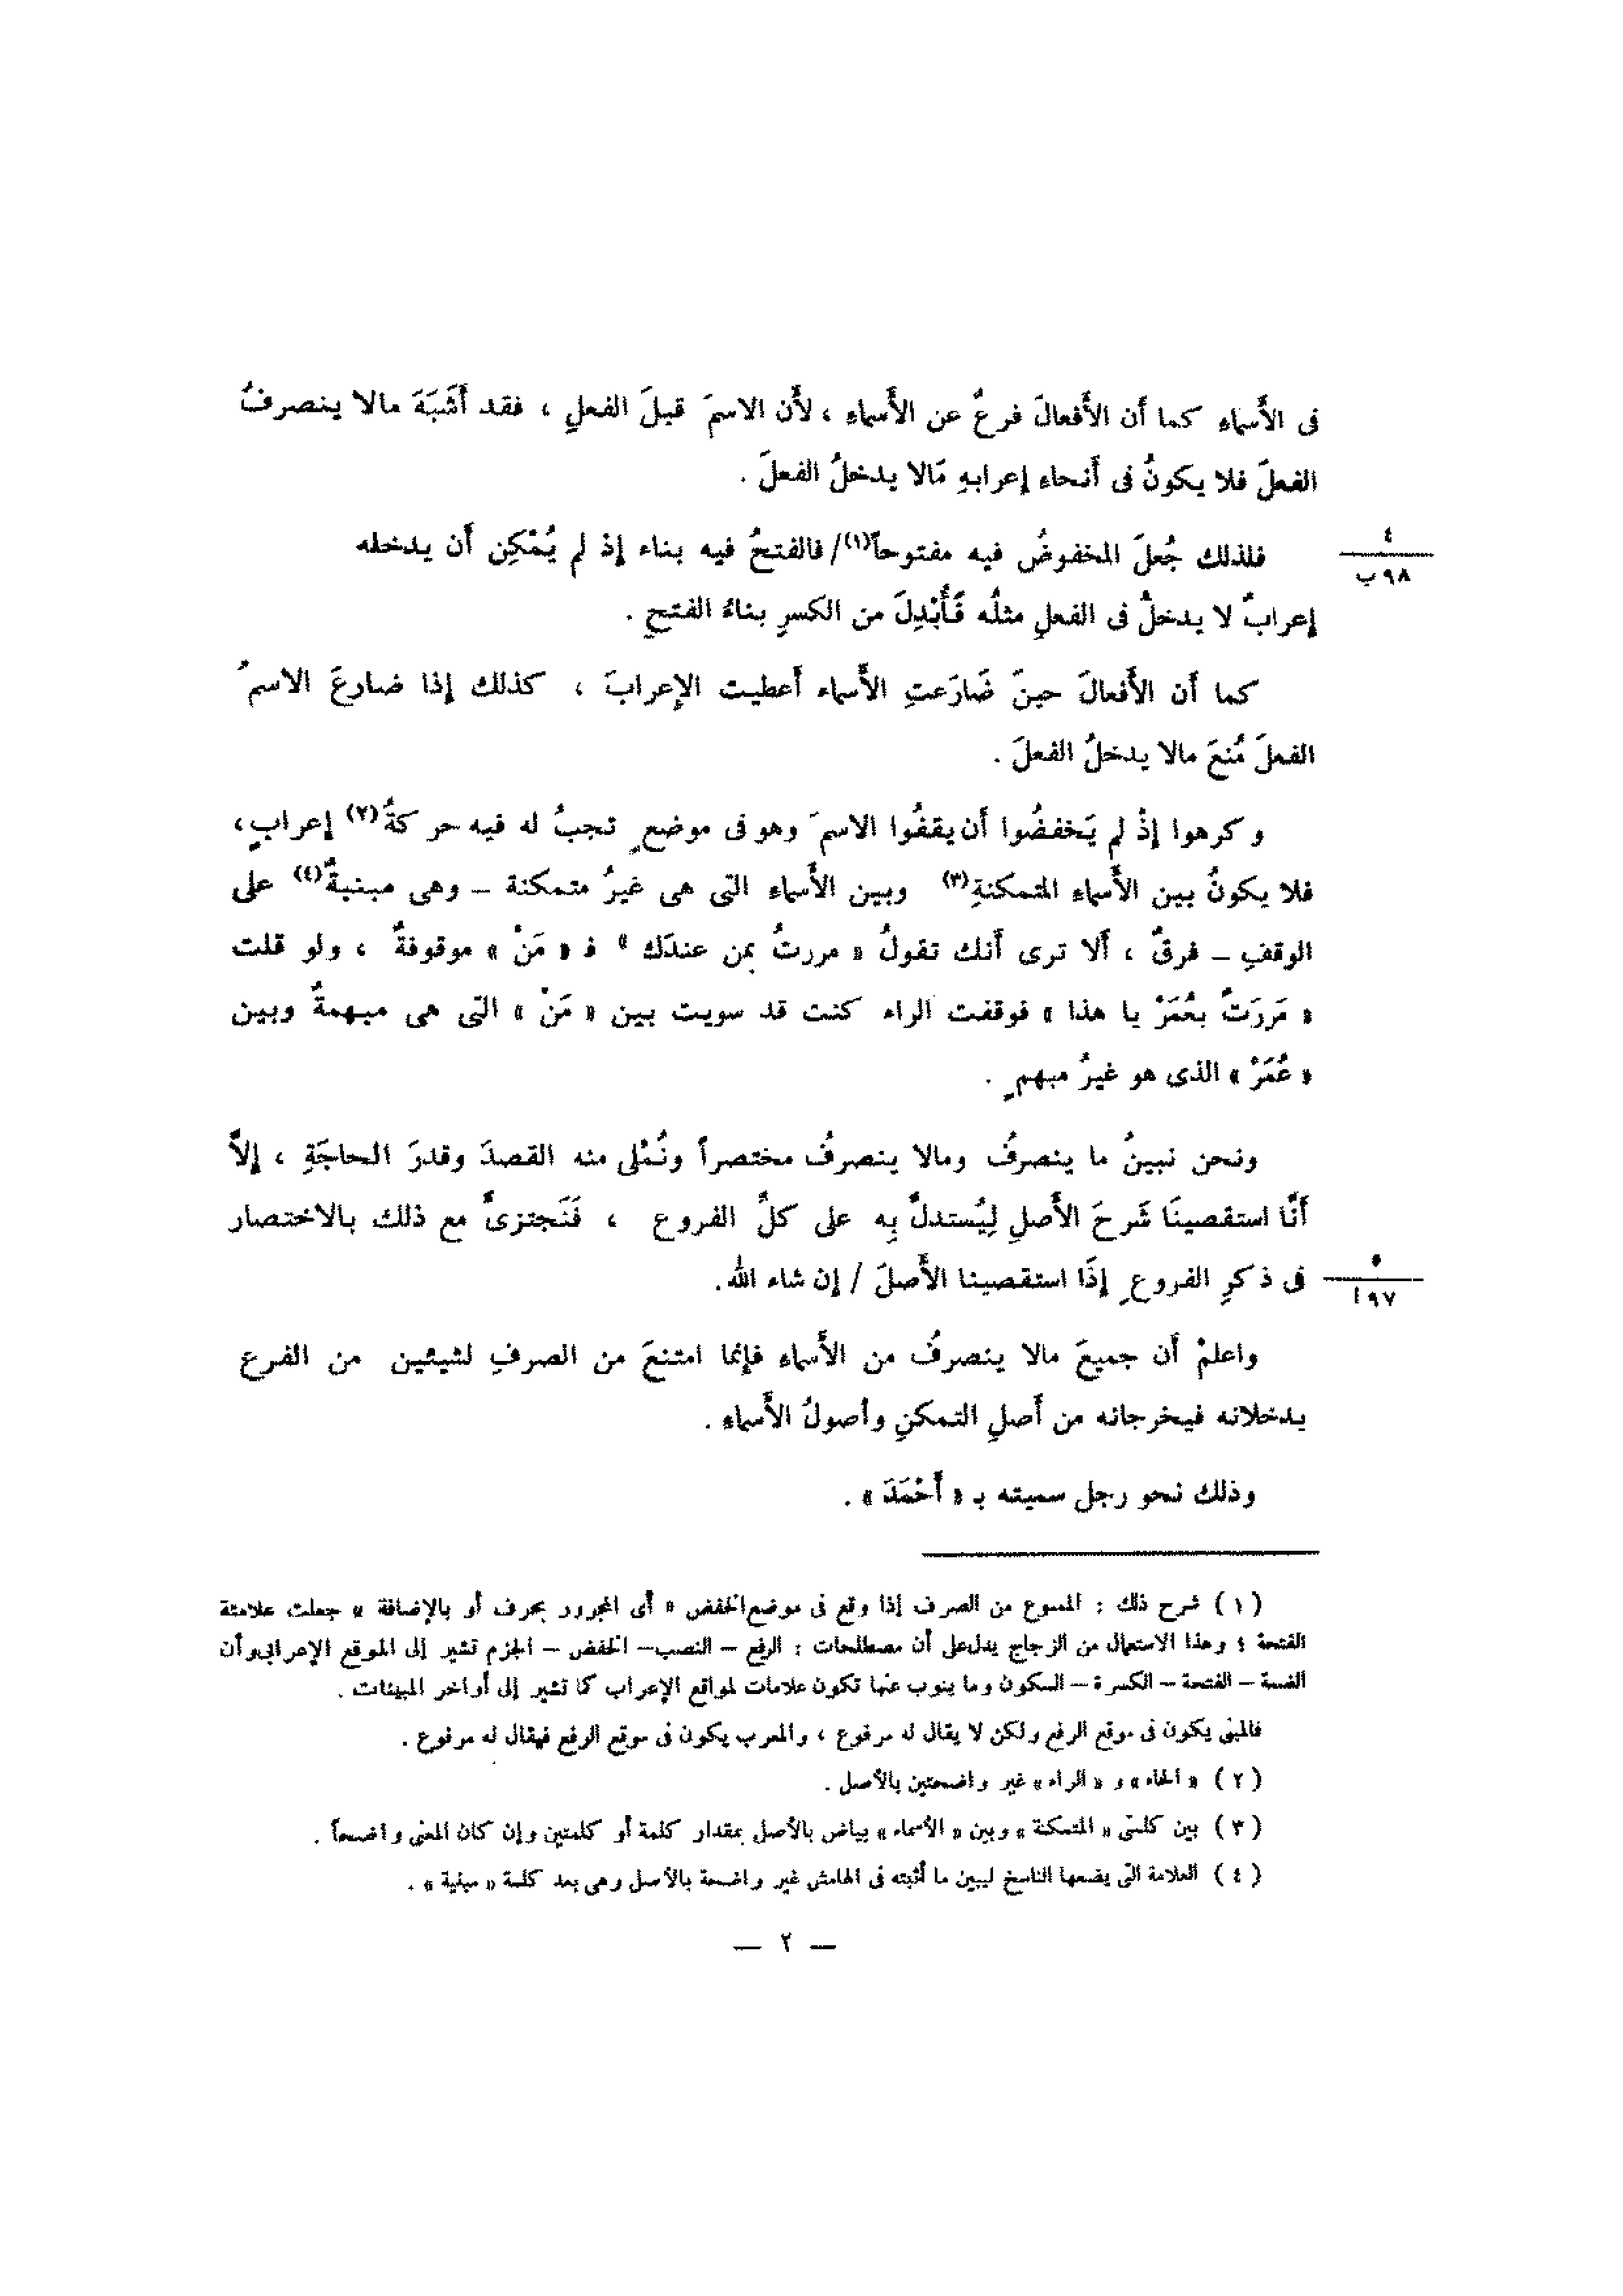 فى الأَسماءِ كما أَن الأَفعالَ فرعٌ عن الأَسماءِ ، لأَن الاسمَ قبلَ الفعلِ ، فقد أَشْبَهَ مالا ينصرفُ
الفعلَ فلا يكونُ فى أَنحاءِ إعرابهِ مَالا يدخلُ الفعلَ .
٤
٩٨ ب
فلذلك جُعلَ المخفوضُ فيه مفتوحاً(١)/ فالفتحُ فيه بناء إذْ لم يُمْكِن أَن يدخله
إعرابٌ لا يدخلُ فى الفعلِ مثلُه فَأُبْدِلَ من الكسرِ بناءُ الفتحِ .
كما أَن الأَفعالَ حينَ ضَارَعتِ الأَسماء أَعطيت الإعرابَ ، كذلك إذا ضارعَ الاسمُ
الفعلَ مُنعَ مالا يدخلُ الفعلَ .
وكرهوا إذْ لم يَخفضُوا أَن يقفُوا الاسمَ وهو فى موضعٍ تجبُ له فيه حركةُ(٢) إعرابٍ،
فلا يكونُ بين الأَسماءِ المتمكنةِ(٣) وبين الأَسماءِ التى هى غيرُ متمكنة – وهى مبنيةٌ(٤) على
الوقفِ – فرقٌ ، أَلا ترى أَنك تقولُ « مررتُ بمن عندَك » فـ « مَنْ » موقوفةٌ ، ولو قلت
« مَررَتُ بعُمَرْ يا هذا » فوقفت الراء كنت قد سويت بين « مَنْ » التى هى مبهمةٌ وبين
« عُمَرْ » الذى هو غيرُ مبهمٍ .
ونحن نبينُ ما ينصرفُ ومالا ينصرفُ مختصراً ونُمْلى منه القصدَ وقدرَ الحاجَةِ ، إلاَّ
أَنَّا استقصينَا شَرحَ الأَصلِ لِيُستدلَّ بِه على كلِّ الفروع ، فَنَجتزئُ مع ذلك بالاختصار
٥
٩٧ ا
فى ذكرِ الفروعِ إذَا استقصينا الأَصلَ / إن شاء الله.
واعلمْ أَن جميعَ مالا ينصرفُ من الأَسماءِ فإنما امتنعَ من الصرفِ لشيئين من الفرع
يدخلانه فيخرجانه من أَصلِ التمكنِ وأصولُ الأَسماءِ .
وذلك نحو رجل سميته بـ « أَحْمَدَ » .
(١) شرح ذلك : الممنوع من الصرف إذا وقع فى موضع الخفض « أى المجرور بحرف أو بالإضافة » جعلت علامته
الفتحة ؛ وهذا الاستعمال من الزجاج يدل على أن مصطلحات : الرفع – النصب – الخفض – الجزم تشير إلى الموقع الإعرابى وأن
الضمة – الفتحة – الكسرة – السكون وما ينوب عنها تكون علامات لمواقع الإعراب كما تشير إلى أواخر المبينات .
فالمبنى يكون فى موقع الرفع ولكن لا يقال له مرفوع ، والمعرب يكون فى موقع الرفع فيقال له مرفوع .
(٢) « الحاء » و « الراء » غير واضحتين بالأصل .
(٣) بين كلمتى « المتمكنة » وبين « الأسماء » بياض بالأصل بمقدار كلمة أو كلمتين وإن كان المعنى واضحاً .
(٤) العلامة التى يضعها الناسخ ليبين ما أثبته فى الهامش غير واضحة بالأصل وهى بعد كلمة « مبنية » .
— ٢ —